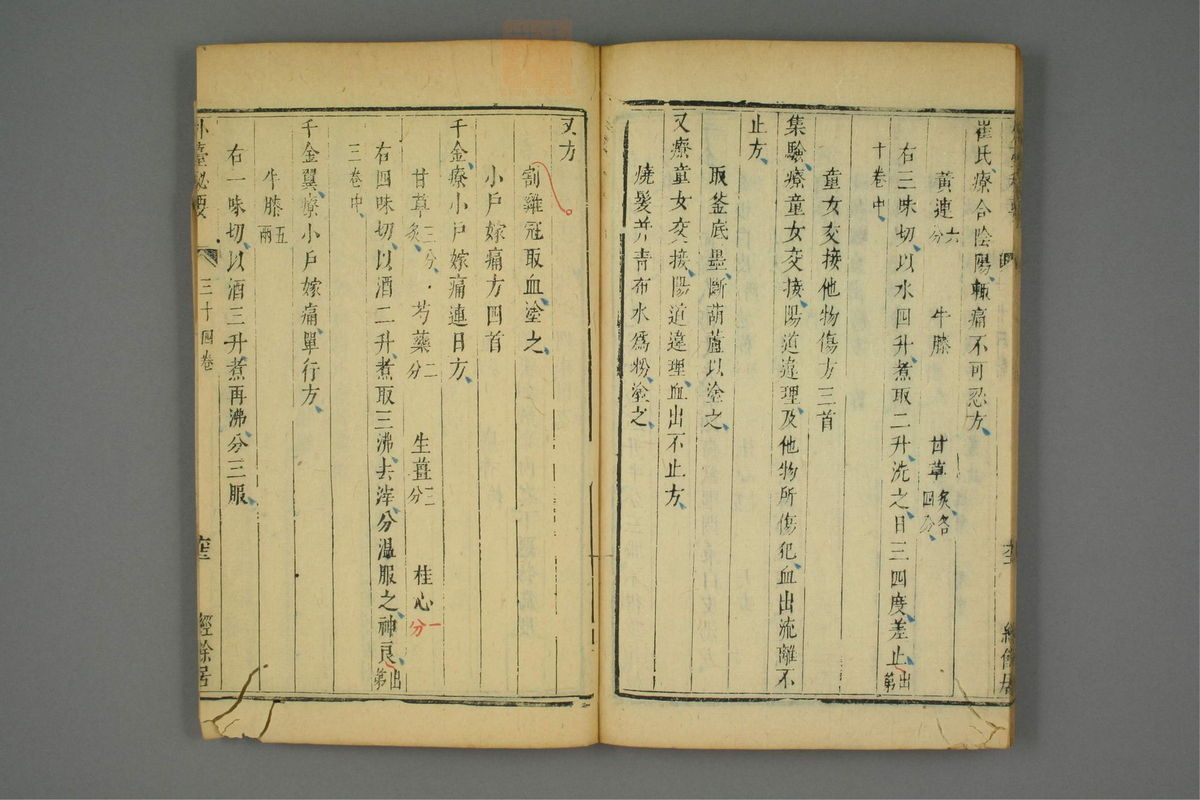 崔氏療合陰陽輒痛不可忍方
黃連六分 牛膝 甘草炙各四分
右三味切以水四升煮取二升洗之日三四度差止出第
十卷中
童女交接他物傷方三首
集驗療童女交接陽道違理及他物所傷犯血出流離不
止方
取釜底墨斷葫蘆以塗之
又療童女交接陽道違理血出不止方
燒髮并青布末爲粉塗之
又方
割雞冠取血塗之
小戶嫁痛方四首
千金療小戶嫁痛連日方
甘草三分炙 芍藥二分 生薑三分 桂心一分
右四味切以酒二升煮取三沸去滓分溫服之神良出第
三卷中
千金翼療小戶嫁痛單行方
牛膝五兩
右一味切以酒三升煮再沸分三服
外臺秘要 三十四卷 經餘居